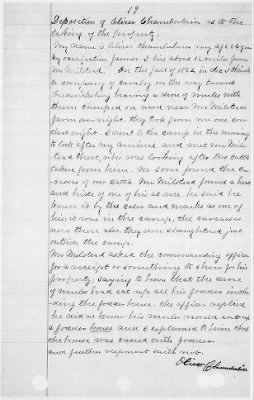 19
Deposition of Oliver Chamberlain as to the
taking of the property.
My name is Oliver Chamberlain my age 69 years
by occupation farmer I live about ½ miles from
Mr Milstead. In the fall of 1862 in Dec I think
a company of cavalry on their way toward
having a drove of mules with
them camped on and near Mr Milsteads
farm over night. they took from me one cow
that night. I went to the camp in the morning
to look after my animal and met Mr Mils-
tead there, who was looking after two cattle
taken from him. We soon found the car-
casses of our cattle. Mr Milstead found a horn
and hide of one of his steers he said he
knew it by the color and marks as one of
his it was in the camp, the carcasses
were there also. they were slaughtered just
outside the camp.
Mr Milstead asked the commanding officer
for a receipt or something to show for his
property; saying to him that the drove
of mules had eat up all his fodder inclu-
ding the fodder house. the officer replied
he did not know his mules would eat
a fodder house and I explained to him that
the house was covered with fodder
and further deponent saith not.
Oliver Chamberlain